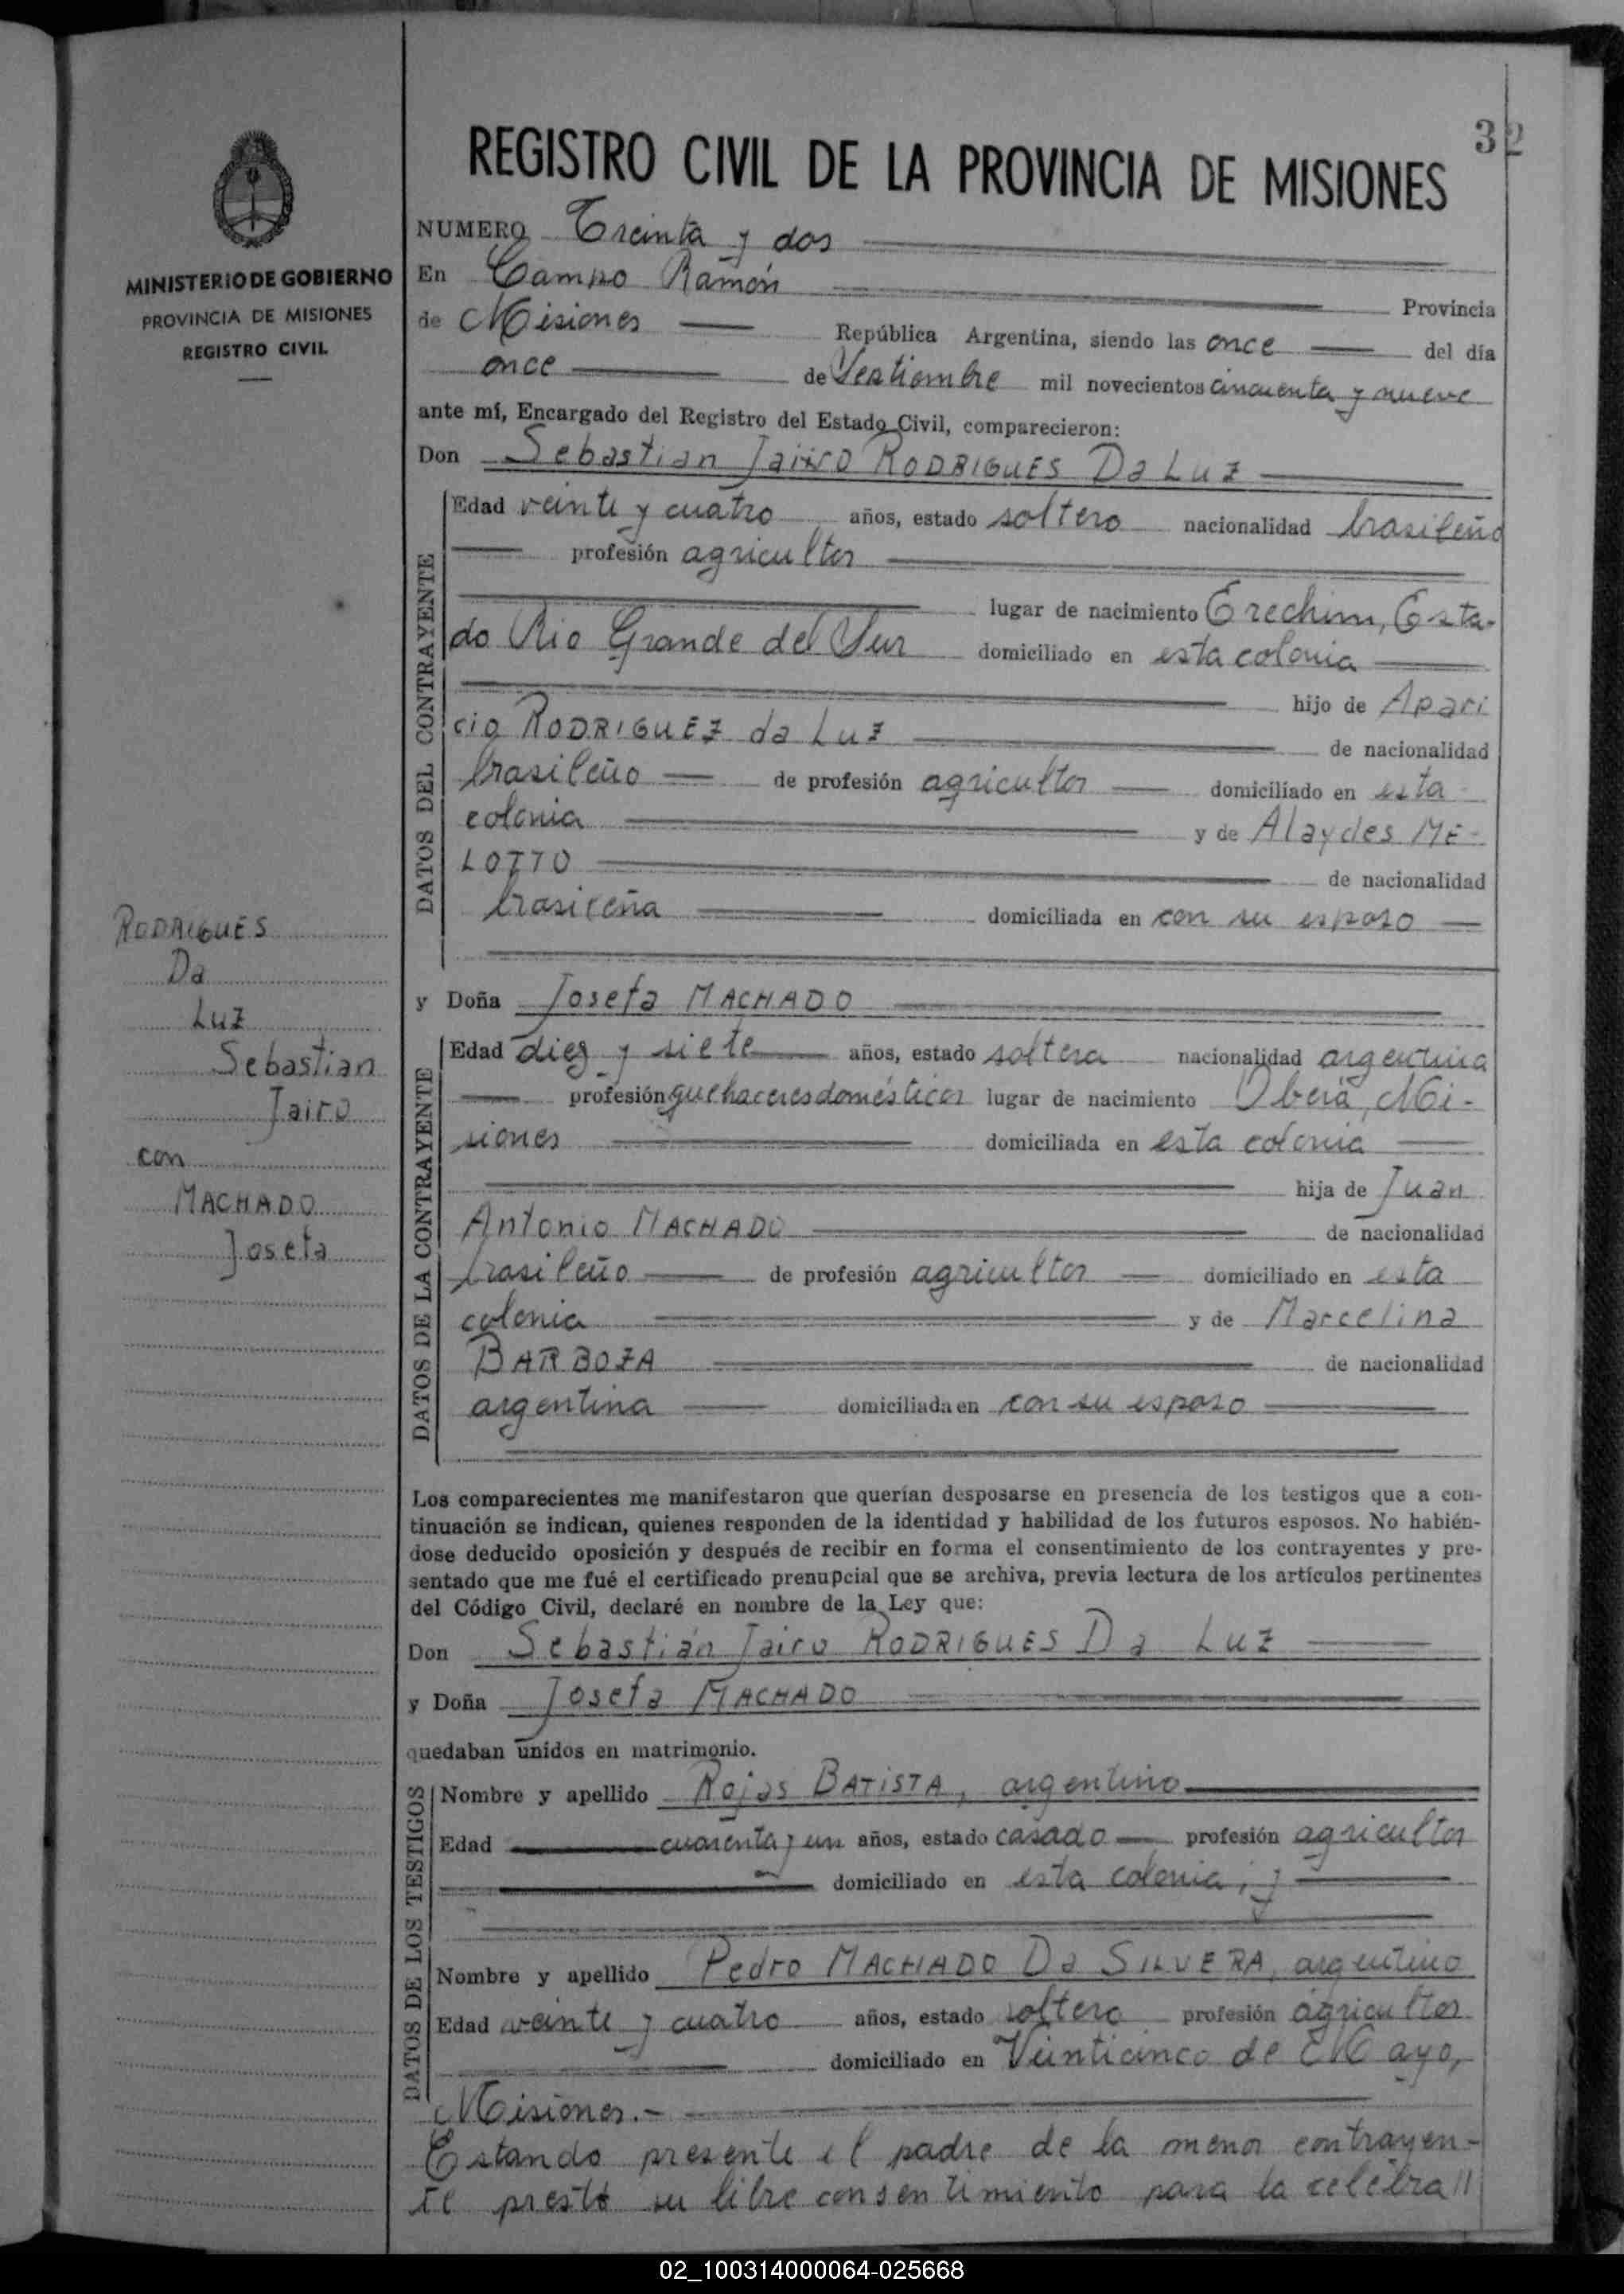 32
REGISTRO CIVIL DE LA PROVINCIA DE MISIONES
MINISTERIO DE GOBIERNO
PROVINCIA DE MISIONES
REGISTRO CIVIL
NUMERO Treinta y dos
En Campo Ramón Provincia
de Misiones República Argentina, siendo las once del día
once de Septiembre mil novecientos cincuenta y nueve
ante mí, Encargado del Registro del Estado Civil, comparecieron:
Don Sebastian Jairo RODRIGUES Da LUZ
DATOS DEL CONTRAYENTE
Edad veinte y cuatro años, estado soltero nacionalidad brasileño
profesión agricultor
lugar de nacimiento Erechim, Esta-
do Rio Grande del Sur domiciliado en esta colonia
hijo de Apari
cio RODRIGUEZ da LUZ de nacionalidad
brasileño de profesión agricultor domiciliado en esta
colonia y de Alaydes ME-
LOTTO de nacionalidad
brasileña domiciliada en con su esposo
RODRIGUES
Da
LUZ
Sebastian
Jairo
con
MACHADO
Josefa
y Doña Josefa MACHADO
DATOS DE LA CONTRAYENTE
Edad diez y siete años, estado soltera nacionalidad argentina
profesión quehaceres domésticos lugar de nacimiento Oberá, Mi-
siones domiciliada en esta colonia
hija de Juan
Antonio MACHADO de nacionalidad
brasileño de profesión agricultor domiciliado en esta
colonia y de Marcelina
BARBOZA de nacionalidad
argentina domiciliada en con su esposo
Los comparecientes me manifestaron que querían desposarse en presencia de los testigos que a con-
tinuación se indican, quienes responden de la identidad y habilidad de los futuros esposos. No habién-
dose deducido oposición y después de recibir en forma el consentimiento de los contrayentes y pre-
sentado que me fué el certificado prenupcial que se archiva, previa lectura de los artículos pertinentes
del Código Civil, declaré en nombre de la Ley que:
Don Sebastián Jairo RODRIGUES Da LUZ
y Doña Josefa MACHADO
quedaban unidos en matrimonio.
DATOS DE LOS TESTIGOS
Nombre y apellido Rojas BATISTA, argentino
Edad cuarenta y un años, estado casado profesión agricultor
domiciliado en esta colonia; y
Nombre y apellido Pedro MACHADO Da SILVERA, argentino
Edad veinte y cuatro años, estado soltero profesión agricultor
domiciliado en Veinticinco de Mayo,
Misiones.-
Estando presente el padre de la menor contrayen-
te prestó su libre consentimiento para la celebra//
02_100314000064-025668